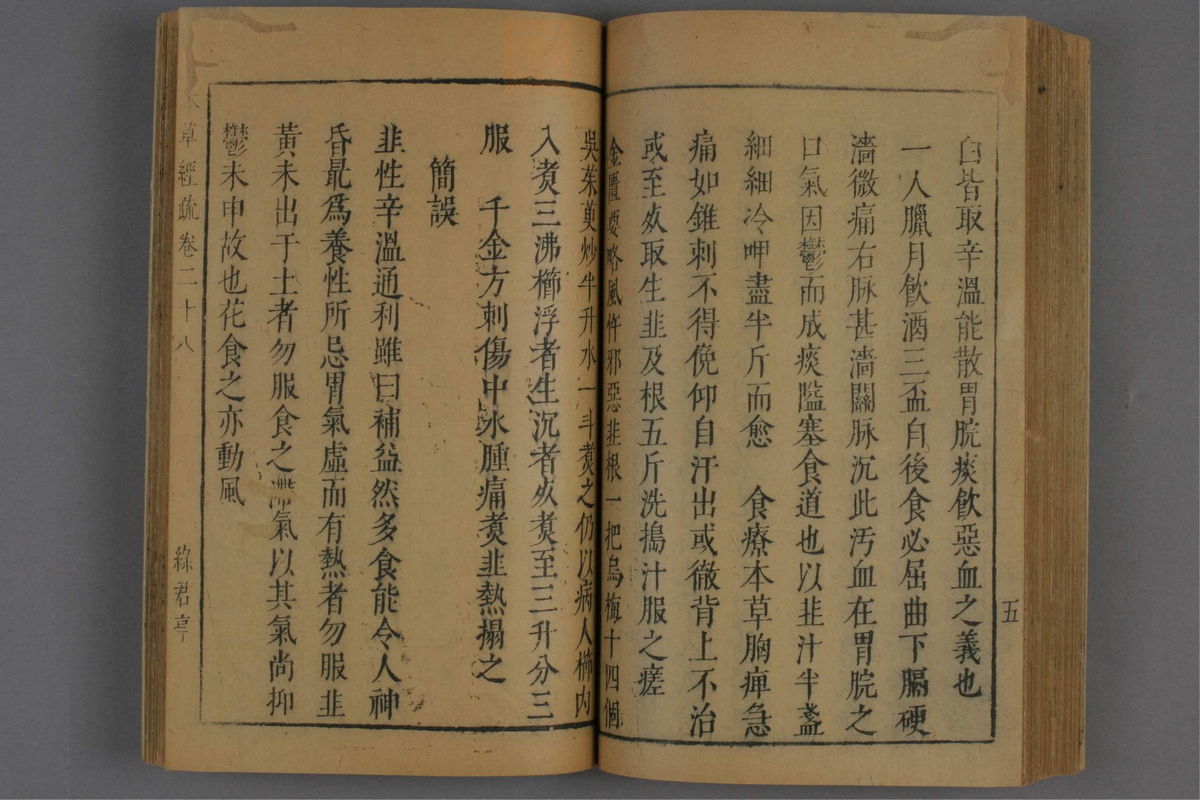 五
白皆取辛溫能散胃脘痰飲惡血之義也
一人臘月飲酒三盃自後食必屈曲下膈硬
濇微痛右脉甚濇關脉沉此汚血在胃脘之
口氣因鬱而成痰隘塞食道也以韭汁半盞
細細冷呷盡半斤而愈　食療本草胸痺急
痛如錐刺不得俛仰自汗出或徹背上不治
或至死取生韭及根五斤洗搗汁服之瘥
金匱要略風忤邪惡韭根一把烏梅十四個
吳茱萸炒半升水一斗煑之仍以病人櫛內
入煑三沸櫛浮者生沉者死煑至三升分三
服　千金方刺傷中水腫痛煑韭熱搨之
簡誤
韭性辛溫通利雖曰補益然多食能令人神
昏最爲養性所忌胃氣虛而有熱者勿服韭
黃未出于土者勿服食之滯氣以其氣尚抑
鬱未申故也花食之亦動風
草經疏卷二十八　綠君亭